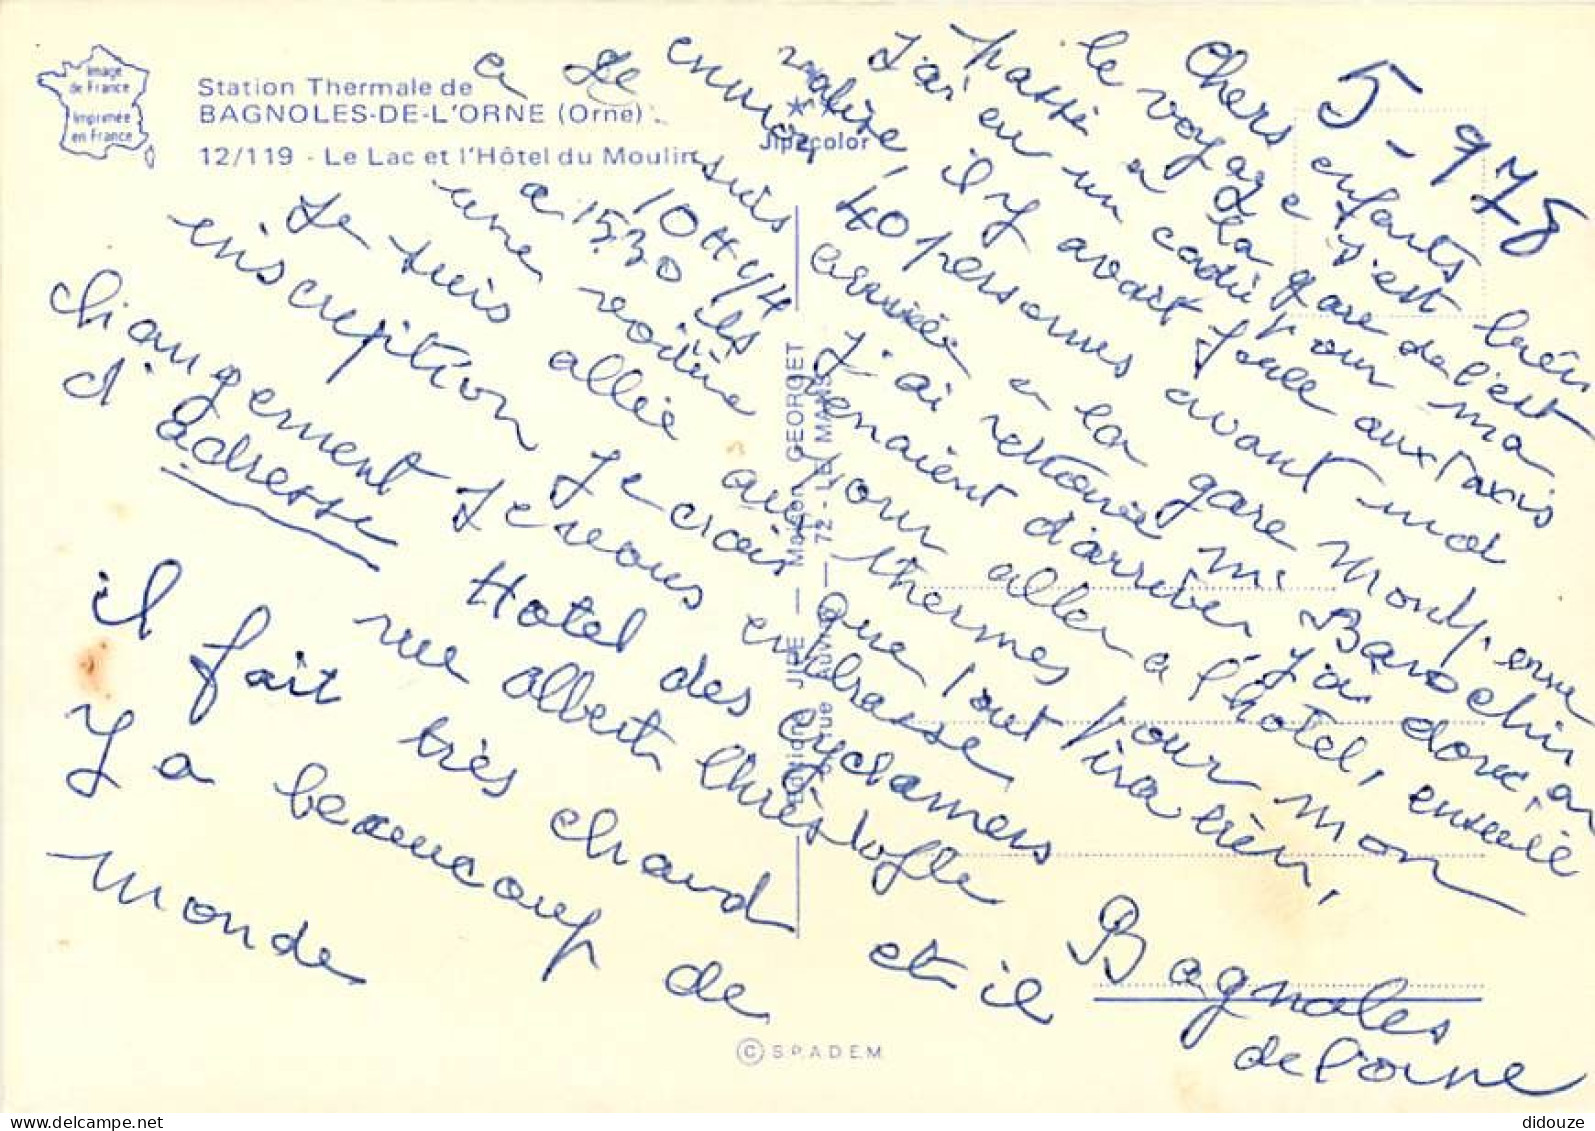 Image
de France
Imprimée
en France
Station Thermale de
BAGNOLES-DE-L'ORNE (Orne)
12/119 - Le Lac et l'Hôtel du Moulin
Jipécolor
5-978
Chers enfants
le voyage s'est bien
passé a la gare de l'est
J'ai eu un cadi pour ma
valise, il y avait foule aux taxis
environ 40 personnes avant moi
Je suis arrivée a la gare Montp.
10H1/4 J'ai retrouvé Mr Barochin
a 15.30 ils venaient d'arriver, J'ai donc
une voiture pour aller a l'hotel, ensuite
Je suis allée aux thermes pour mon
inscription Je crois que tout ira bien,
changement Je vous embrasse
d'adresse Hotel des Cyclamens
rue albert Christofle
il fait très chaud et il
Y a beaucoup de
monde
Bagnoles
de l'orne
MAISON GEORGET
72 - LE MANS
© S.P.A.D.E.M.
didouze